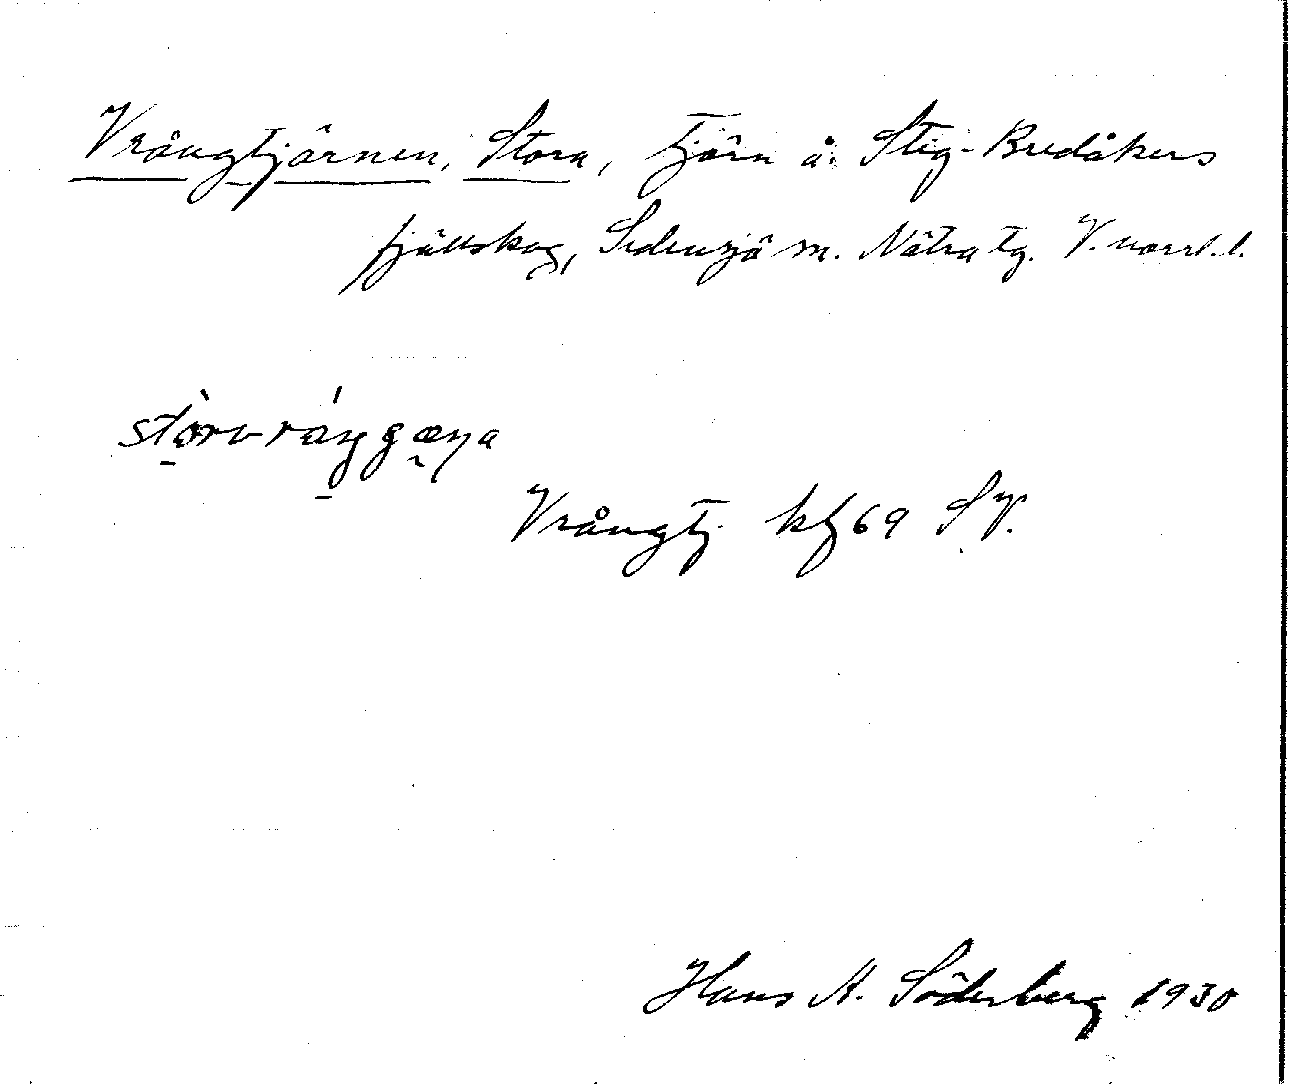 Vrångtjärnen, Stora, tjärn å Stig-Bredåkers
fjällskog, Sidensjö sn. Nätra tg. V.norrl.l.
Vrångtj. kf 69 SV.
Hans A. Söderberg 1930